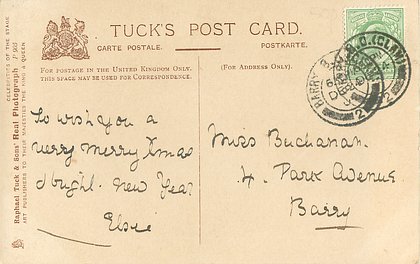 TUCK'S POST CARD.
CARTE POSTALE.
POSTKARTE.
FOR POSTAGE IN THE UNITED KINGDOM ONLY.
THIS SPACE MAY BE USED FOR CORRESPONDENCE.
(FOR ADDRESS ONLY.)
CELEBRITIES OF THE STAGE
Raphael Tuck & Sons' Real Photograph
ART PUBLISHERS TO THEIR MAJESTIES THE KING & QUEEN
BARRY
(GLAM)
2
2
To wish you a
very merry Xmas
& bright. New Year
Elsie
Miss Buchanan.
4. Park Avenue.
Barry